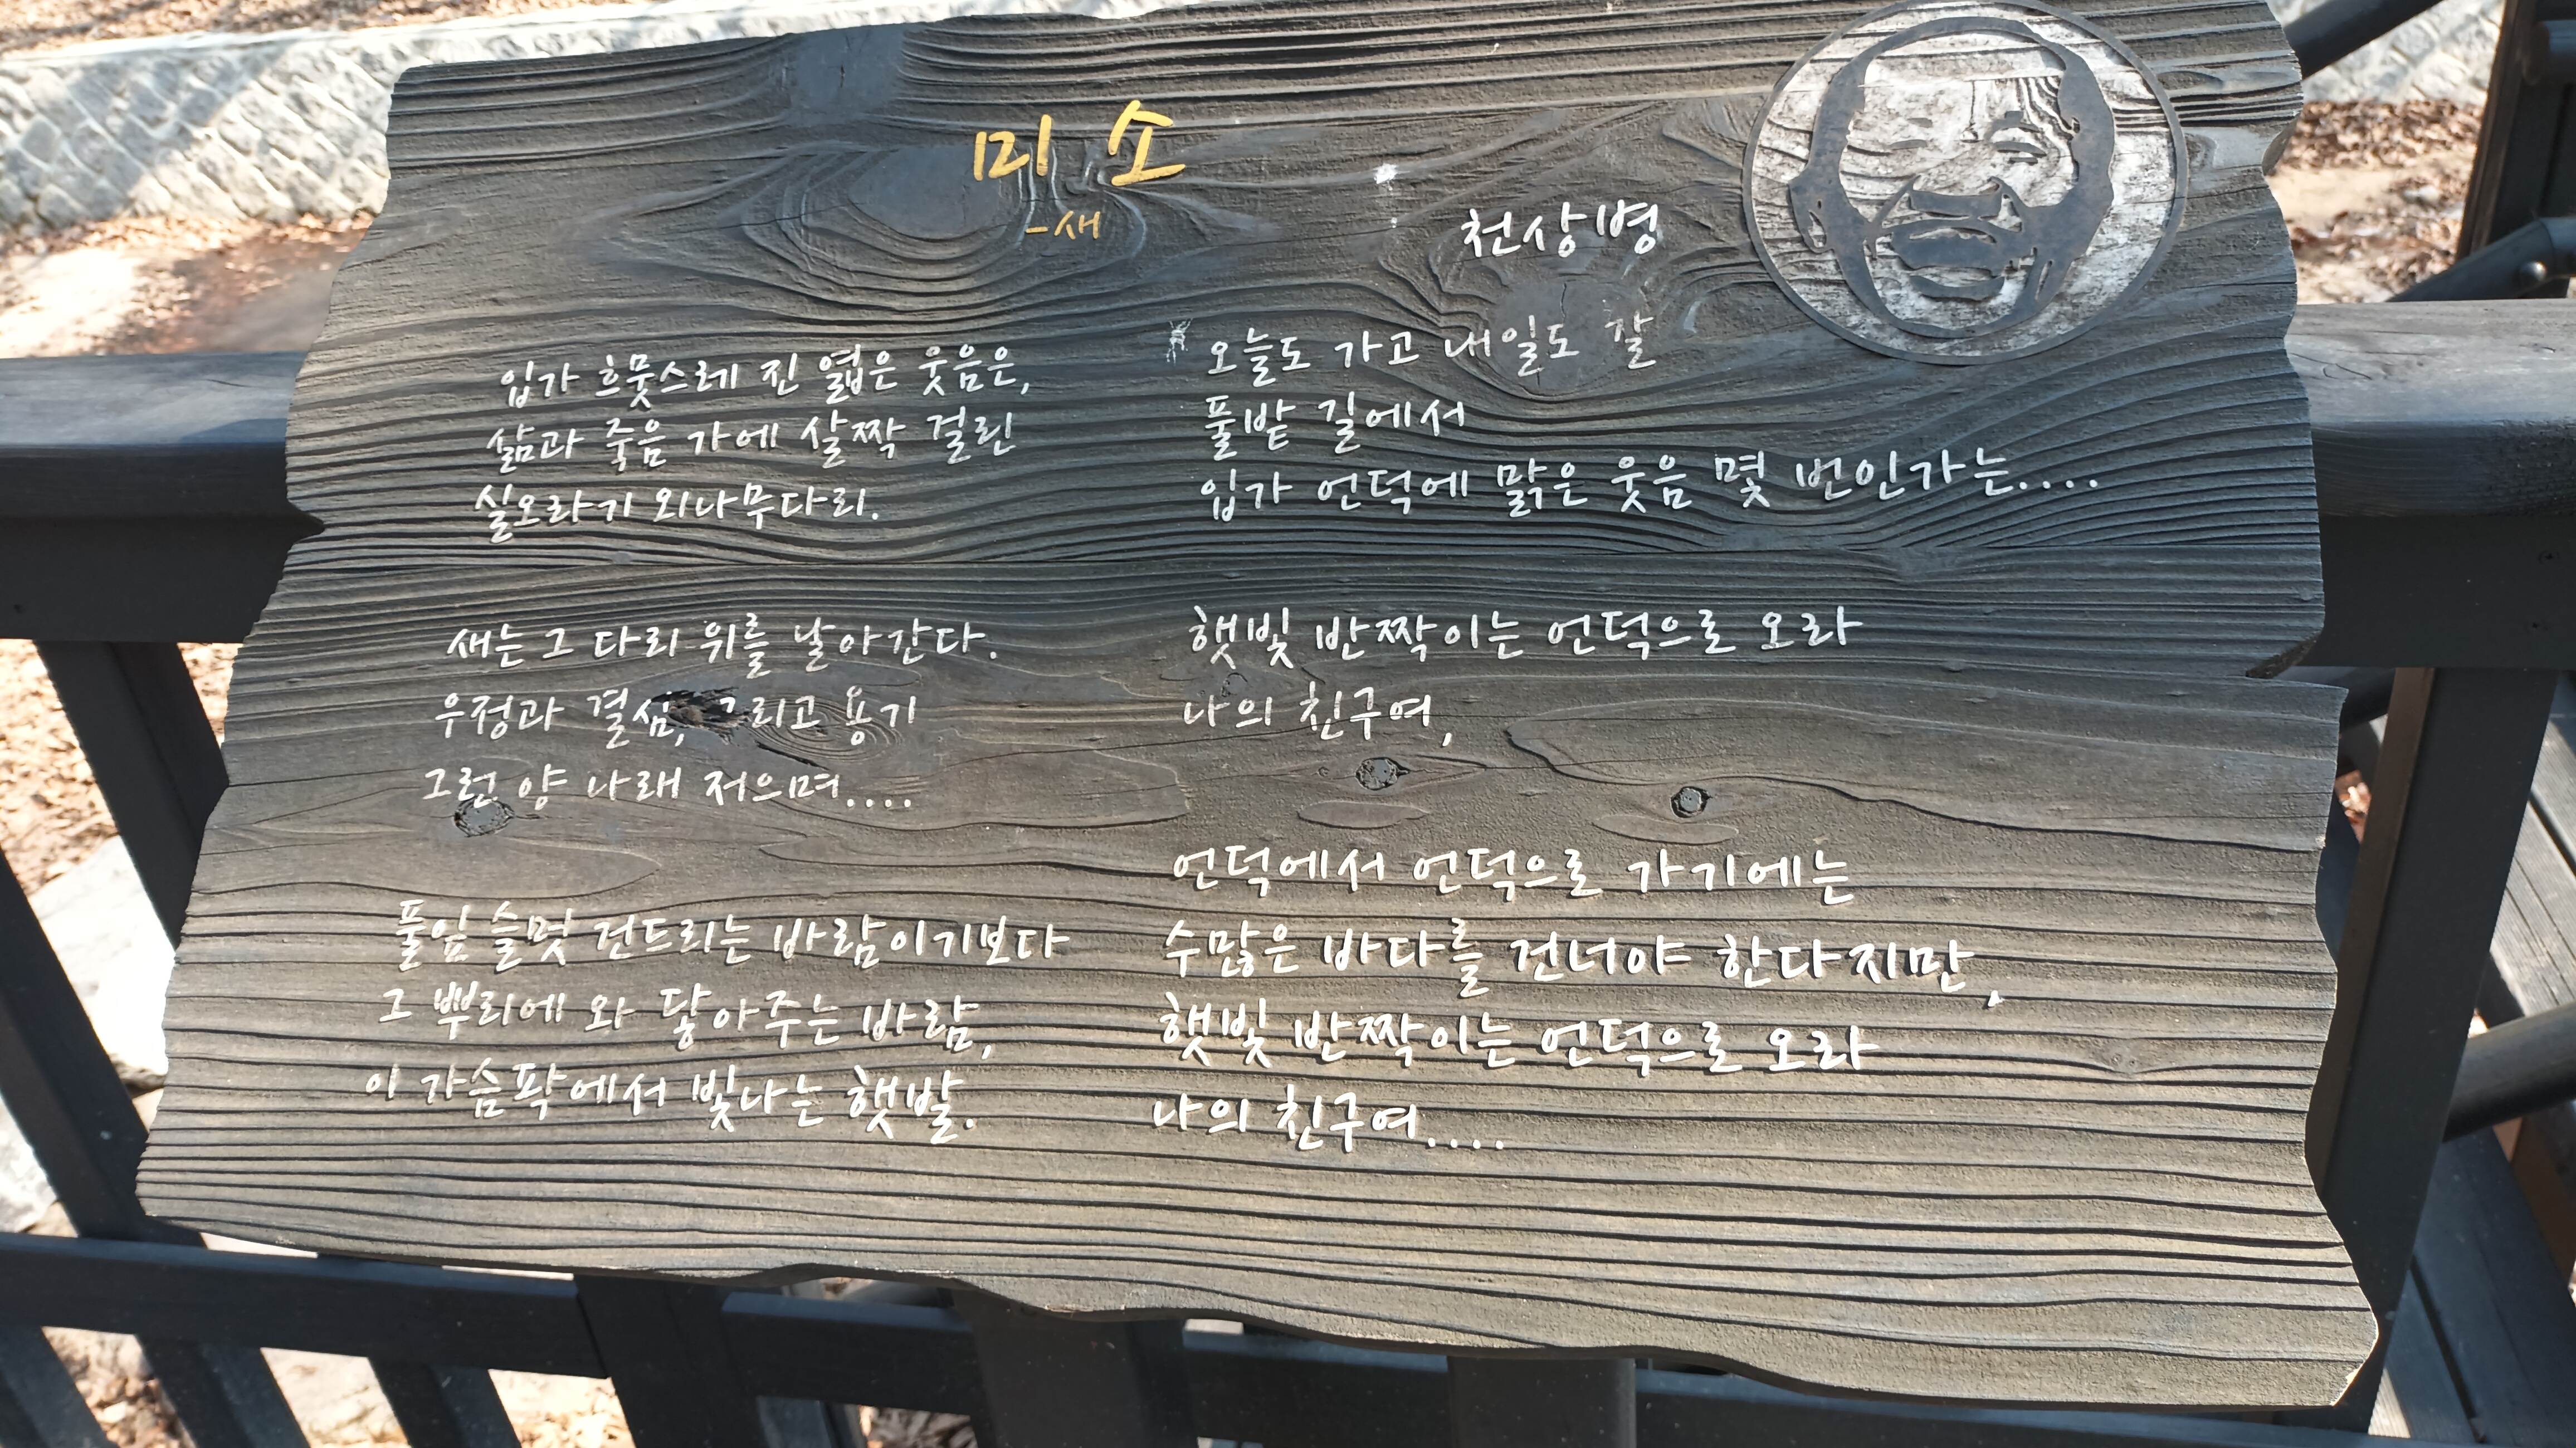 미 소
-새
천상병
입가 흐뭇스레 진 엷은 웃음은,
삶과 죽음 가에 살짝 걸린
실오라기 외나무다리.
새는 그 다리 위를 날아간다.
우정과 결심, 그리고 용기
그런 양 나래 저으며....
풀잎 슬멋 건드리는 바람이기보다
그 뿌리에 와 닿아주는 바람,
이 가슴팍에서 빛나는 햇발.
오늘도 가고 내일도 갈
풀밭 길에서
입가 언덕에 맑은 웃음 몇 번인가는....
햇빛 반짝이는 언덕으로 오라
나의 친구여,
언덕에서 언덕으로 가기에는
수많은 바다를 건너야 한다지만,
햇빛 반짝이는 언덕으로 오라
나의 친구여....